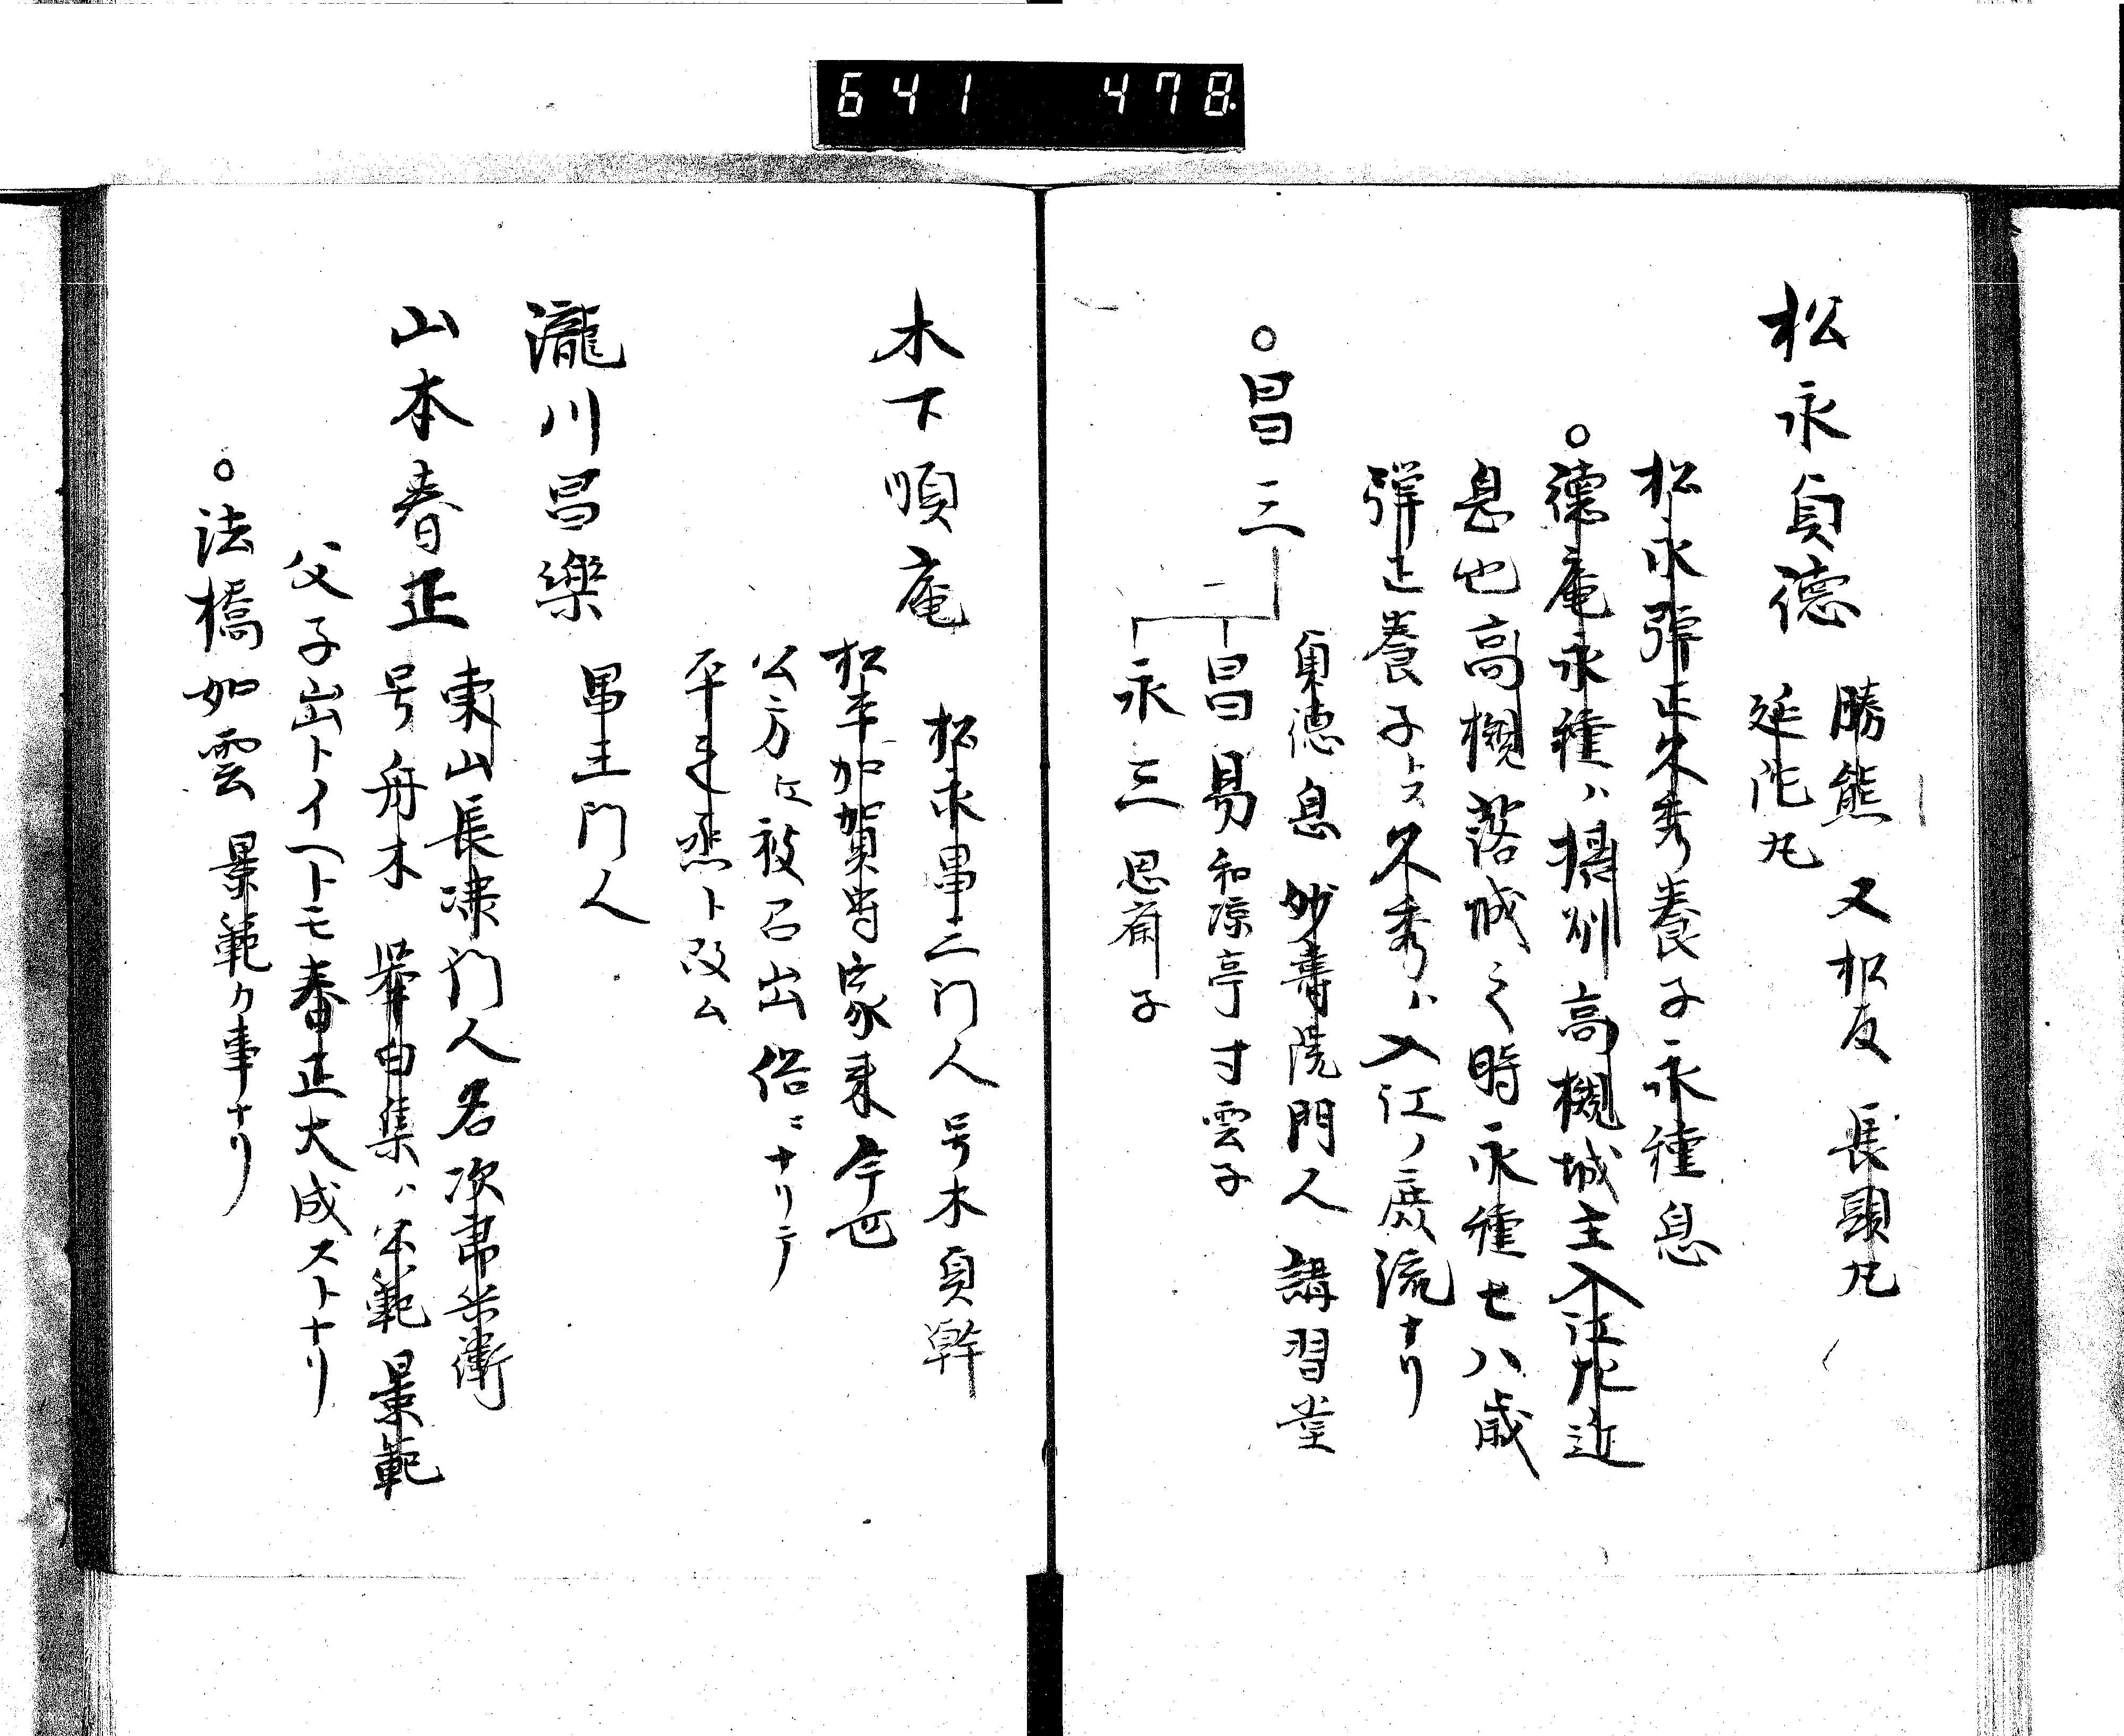 641 478.
松永貞徳
勝熊 又松友 長頭丸
延陀丸
松永弾正久秀養子永種息
○徳庵永種ハ摂州高槻城主入江左近
息也高槻落城之時永種七八歳
弾正養子トス久秀ハ入江ノ庶流ナリ
○昌三
貞徳息 妙寿院門人 講習堂
昌易 和凉亭 寸雲子
永三 思斎子
木下順庵
松永昌三門人 号木貞幹
松平加賀守家来今也
公方ヱ被召出俗ニナリテ
平之丞ト改ム
瀧川昌楽 昌三門人
山本春正
東山長嘯門人名次郎兵衛
号舟木 挙白集ハ公範景範
父子出トイヘトモ春正大成ストナリ
○法橋如雲 景範カ事ナリ